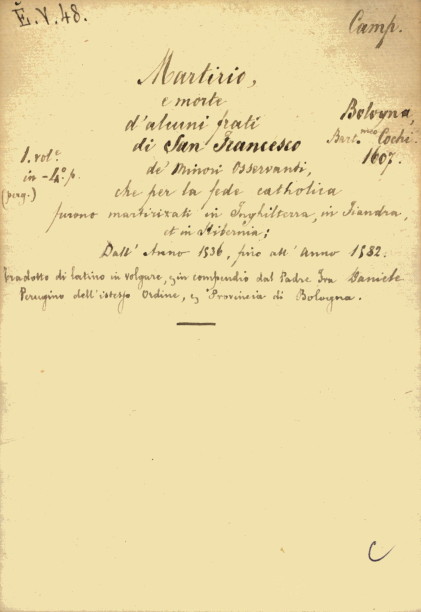 E.V.48.
Camp.
Martirio,
e morte
d'alcuni frati
di San Francesco
de' Minori Osservanti,
che per la fede catholica
furono martirizati in Inghilterra, in Fiandra,
et in Hibernia;
Dall' Anno 1536, fino all' Anno 1582.
Tradotto di latino in volgare, & in compendio dal Padre Fra Daniele
Perugino dell'istesso Ordine, & Provincia di Bologna.
Bologna,
Bart.meo Cochi.
1607.
1. vole
in-4.º p.
(perg.)
C